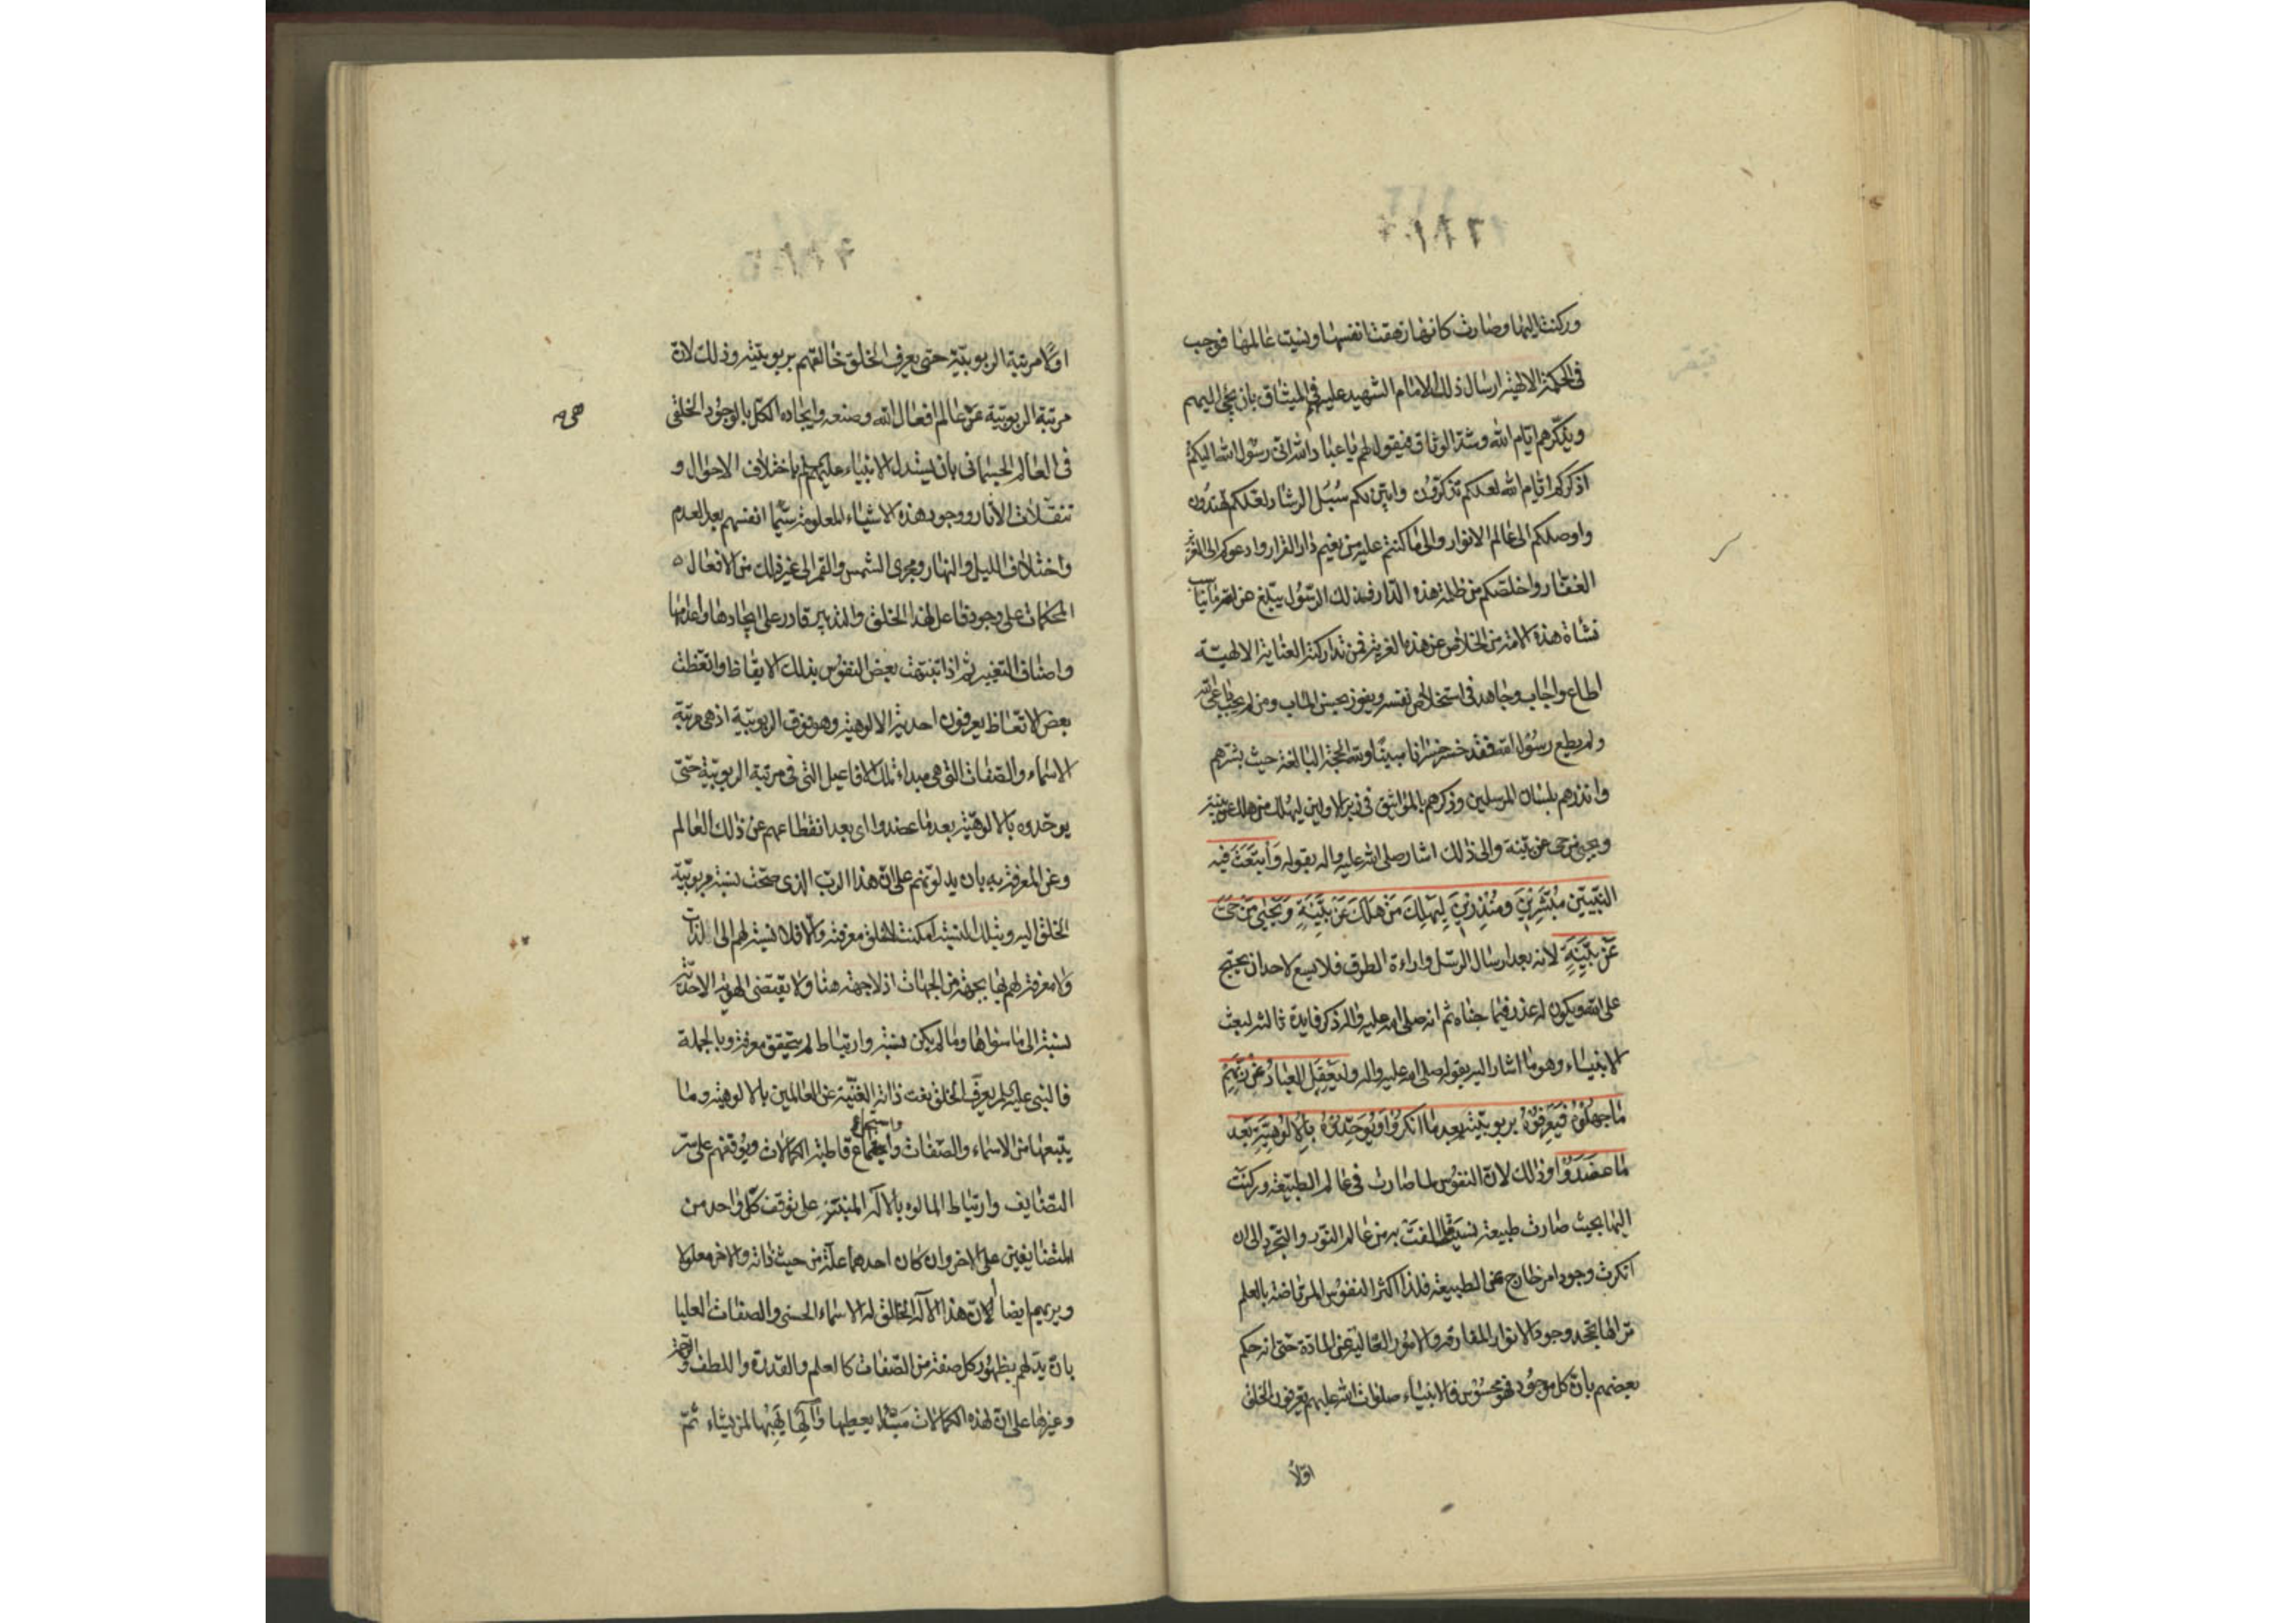 وركنت اليها وصارت كانها زهقت نفسها ونسيت عالمها فوجب
فى الحكمة الالهية ارسال ذلك الامام الشهيد عليهم فى الميثاق بان يجئ اليهم
ويذكّرهم ايام الله وشدّة الوثاق فيقول لهم يا عباد الله انّى رسول الله اليكم
اذكركم ايّام الله لعلكم تذكّرون وابيّن لكم سُبُل الرشاد لعلكم تهتدون
واوصلكم الى عالم الانوار والى ما كنتم عليه من نعيم دار القرار وادعوكم الى العزيز
الغفّار واخلّصكم من ظلمة هذه الدّار فبذلك الرّسول يبلغ
نشاة هذه الامة من الخلاص عن هذه الغربة فمن تداركته العناية الالهيّة
اطاع واجاب وجاهد فى استخلاص نفسه ويفوز بحسن الماب ومن لم يجب داعى الله
ولم يطع رسول الله فقد خسر خسرانا مبينًا ولله الحجّة البالغة حيث بشّرهم
وانذرهم بلسان المرسلين وذكرهم بالمواثيق فى زبر الاولين ليهلك من هلك عن بيّنة
ويحيى من حىّ عن بيّنة والى ذلك اشار صلى الله عليه واله بقوله وَابْتَعَثَ فيه
النّبِيّينَ مُبَشِّرِينَ ومُنْذِرِينَ لِيَهْلِكَ مَنْ هَلَكَ عَنْ بَيِّنَةٍ وَيَحْيَى مَنْ حَىَّ
عَنْ بَيِّنَةٍ لانه بعد ارسال الرسّل واراءة الطرق فلا يسع لاحد ان يحتج
على الله ويكون له عذر فيما جناه ثم انه صلى الله عليه واله ذكر فايدة ثالثه لبعث
الانبياء وهو ما اشار اليه بقوله صلى الله عليه واله وليَعْقِلَ العِبادُ عَنْ رَبِّهِمْ
ما جهلُوهُ فَيَعْرِفُوهُ بربوبيّته بعد ما انكروا ويُوَحِّدُوهُ بالالوهيّة بَعد
ما عضَدُوْا وذلك لانّ النفوس لما صارت فى عالم الطبيعة وركنت
اليها بحيث صارت طبيعة نسيت ما الفَتْ به من عالم النّور والتجرّد الى ان
انكرت وجود امر خارج عن الطبيعة فلذا اكثر النفوس المرتاضة بالعلم
تراها تجحد وجود الانوار المفارقة والامور العالية عن المادّة حتى انه حكم
بعضهم بانّ كل موجود فهو محسوس فالانبياء صلوات الله عليهم يعرفون الخلق
اوّلاً
اوّلا مرتبة الربوبيّة حتى يعرف الخلق خالقهم بربوبيّته وذلك لانّ
مرتبة الربوبيّة عن عالم افعال الله وصنعه وايجاده الكلّ بالوجود الخلقى
فى العالم الجسمانى بان يستدل الانبياء عليهم باختلاف الاحوال و
تنقّلات الآثار ووجود هذه الاشياء المعلومة سيّما انفسهم بعد العدم
واختلاف الليل والنهار ومجرى الشمس والقمر الى غير ذلك من الافعال
المحكمات على وجود فاعل لهذا الخلق والتدبير قادر على ايجادها واعدامها
واصناف التغيير ثم اذا تنبّهت بعض النفوس بذلك الايقاظ واتّعظت
بعض الاتّعاظ يعرفون احديّة الالوهيّة وهو فوق الربوبيّة اذ هى مرتبة
الاسماء والصّفات التى هى مبداء تلك الافاعيل التى فى مرتبة الربوبيّة حتّى
يوحّدوه بالالوهيّة بعد ما عضدوا اى بعد انقطاعهم عن ذلك العالم
وعن المعرفة به بان يدلّوهم على انّ هذا الربّ الذى صحّت نسبة مربوبيّة
الخلق اليه وبتلك النسبة امكنت للخلق معرفته والّا فلا نسبة لهم الى الذات
ولا معرفة لهم بها بجهة من الجهات اذ لا جهة هنا ولا يقتضى الهويّة الاحديّة
نسبة الى ما سواها وما لم يكن نسبة وارتباط لم يتحقق معرفة وبالجملة
فالنبى عليه السلم يعرّف الخلق بنعت ذاته الغنيّة عن العالمين بالالوهية وما
يتبعها من الاسماء والصّفات واجتماع قاطبة الكمالات ويوقفهم على سرّ
التضايف وارتباط المالوه بالآله المبتنى على توقف كلّ واحد من
المتضايفين على الاخر وان كان احدهما علّة من حيث ذاته والاخر معلولا
ويريهم ايضا لانّ هذا الآله الخالق له الاسماء الحسنى والصفات العليا
بان يدلّهم بظهور كل صفة من الصّفات كالعلم والقدرة واللطف والرحمة
وغيرها على انّ لهذه الكمالات مَبْدَا يعطيها وآلها يَهَبُها لمن يشاء ثمّ